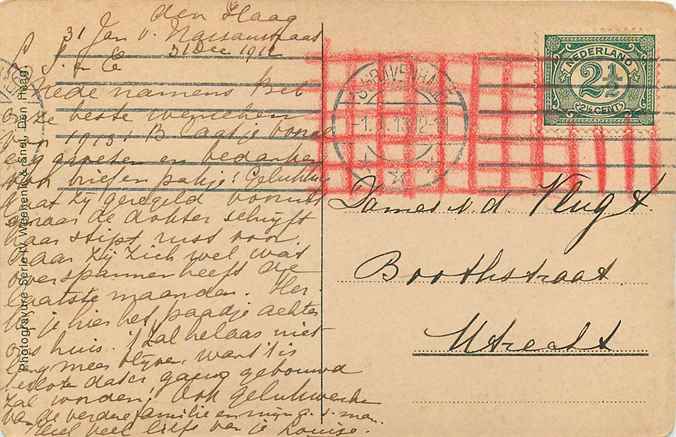 den Haag
31 Jan v. Nassaustraat
31 Dec 1912
L. & E.
Mede namens Bet
onze beste wenschen
voor 1913! B. laat je vooral
erg groeten en bedanken
voor brief en pakje! Gelukkig
gaat zij geregeld vooruit
maar de dokter schrijft
haar stipt rust voor
daar zij zich wel wat
overspannen heeft de
laatste maanden. Her-
ken je hier het paadje achter
ons huis. 't Zal helaas niet
lang meer blijven want 't is
de gebouwd
zal worden. Ook gelukwenschen
van de verdere familie en mijn
Heel veel liefs van je Louise.
Photogravure Serie by Weenenk & Snel, Den Haag
'S GRAVENHAGE
1.1.13. 12-1
NEDERLAND
2½
2½ CENT
Dames v. d. Vlugt.
Boothstraat
Utrecht